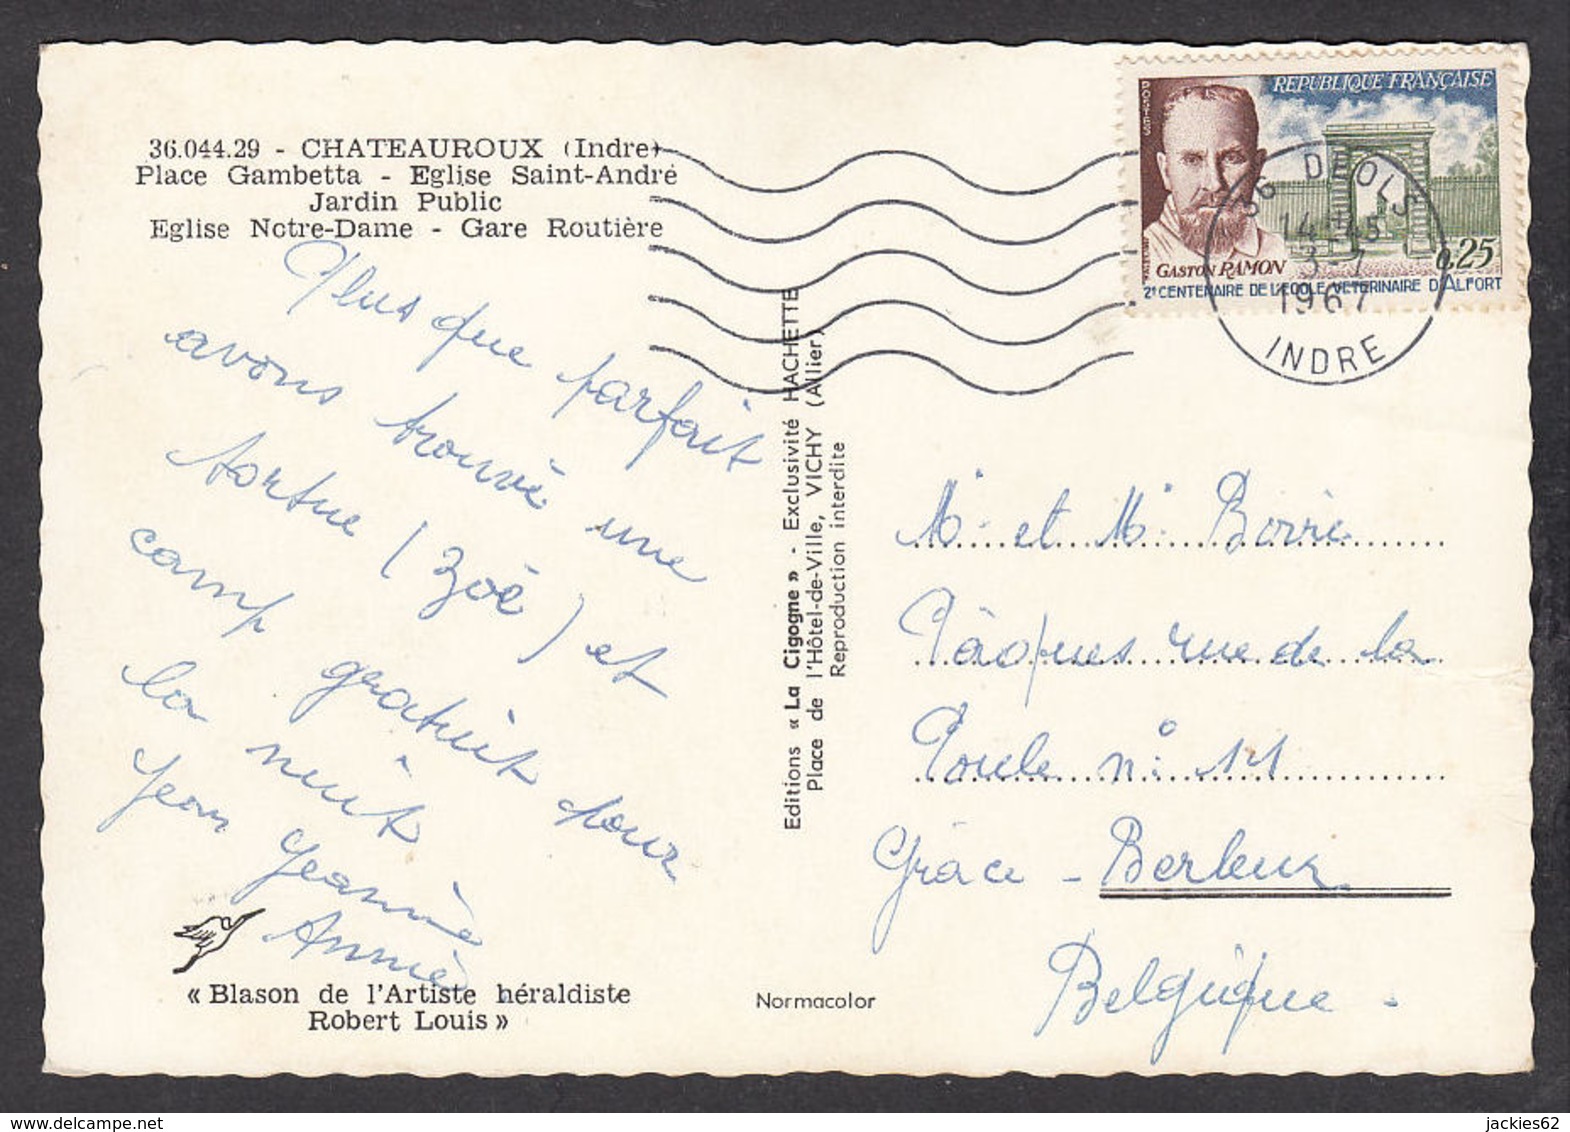 36.044.29 - CHATEAUROUX (Indre)
Place Gambetta - Eglise Saint-André
Jardin Public
Eglise Notre-Dame - Gare Routière
Plus que parfait
avons trouvé une
tortue (Zoé) et
camp gratuit pour
la nuit
Jean Jeanne
Annie
« Blason de l'Artiste héraldiste
Robert Louis »
Normacolor
Editions « La Cigogne » - Exclusivité HACHETTE
Place de l'Hôtel-de-Ville, VICHY (Allier)
Reproduction interdite
POSTES
REPUBLIQUE FRANÇAISE
GASTON RAMON
0,25
2e CENTENAIRE DE L'ECOLE VETERINAIRE D'ALFORT
36 DEOLS
14-45
3-7
1967
INDRE
Mr et Me Borrie
Pâques rue de la
Poule n° 11
Grâce - Berleur
Belgique -
jackies62